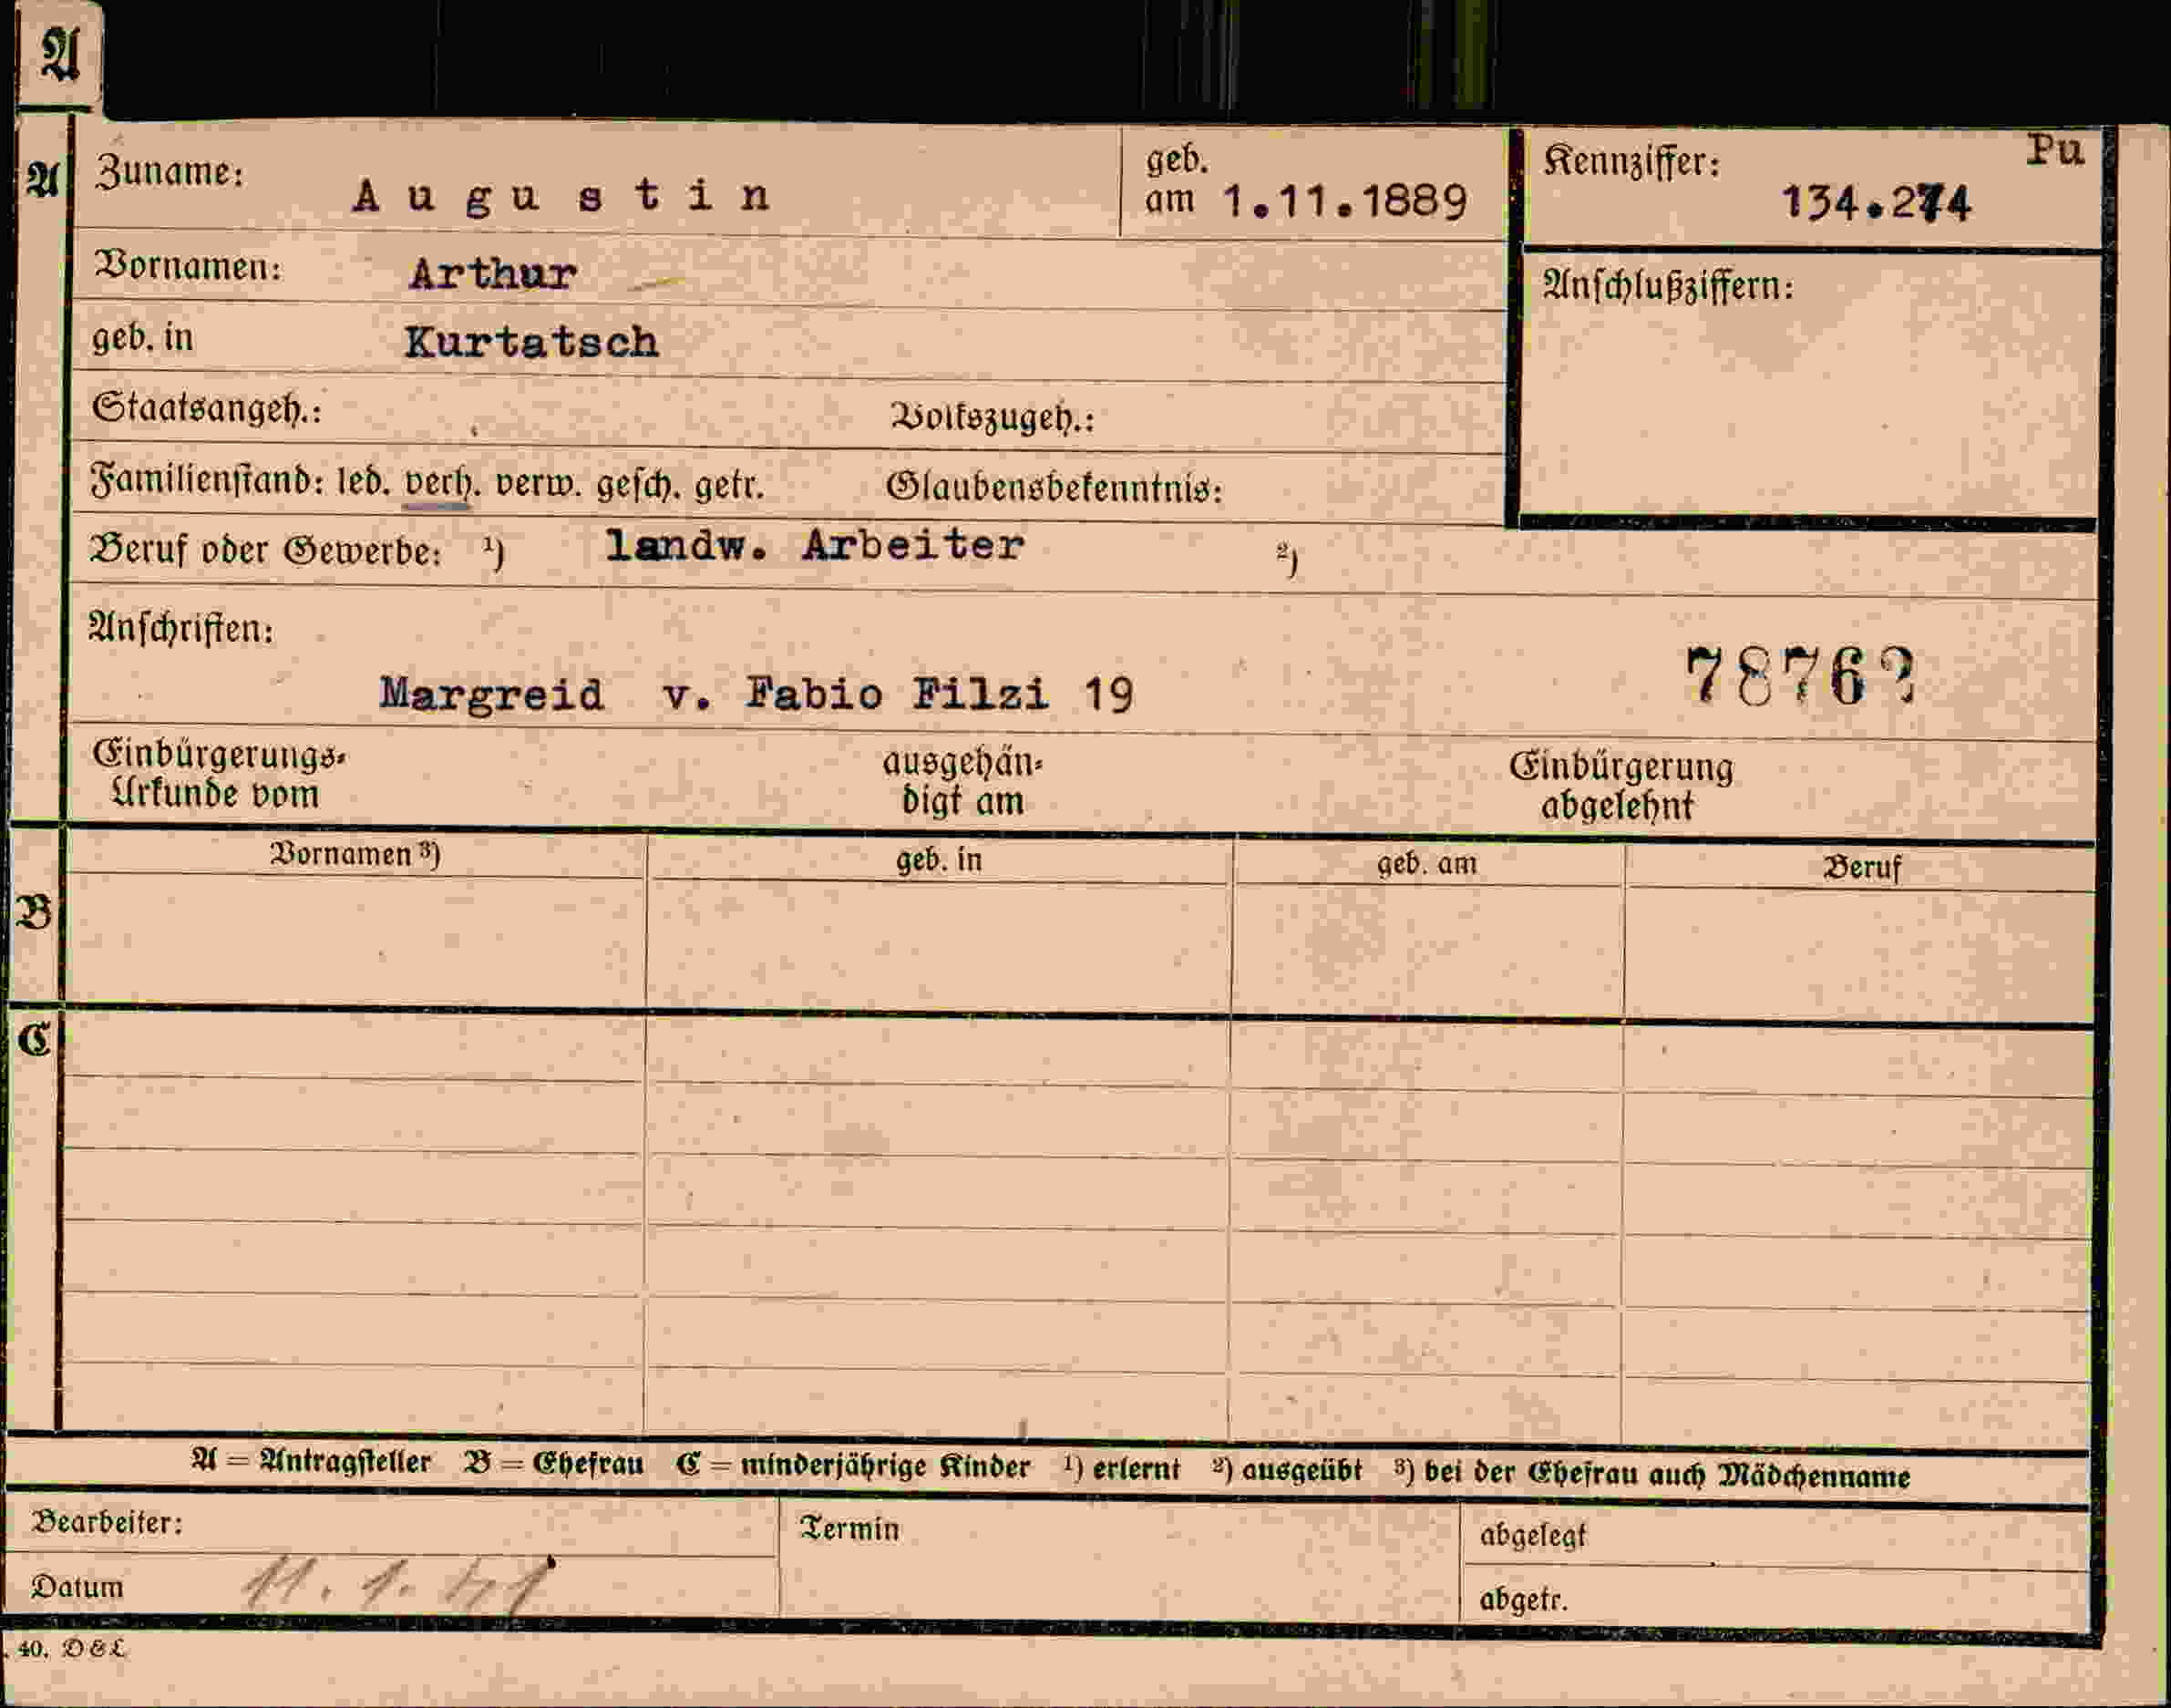 A
A
Zuname: Augustin geb. am 1.11.1889
Kennziffer: Pu
134.274
Vornamen: Arthur
Anschlußziffern:
geb. in Kurtatsch
Staatsangeh.: Volkszugeh.:
Familienstand: led. verh. verw. gesch. getr. Glaubensbekenntnis:
Beruf oder Gewerbe: ¹) landw. Arbeiter ²)
Anschriften:
Margreid v. Fabio Filzi 19
Einbürgerungs-Urkunde vom ausgehändigt am Einbürgerung abgelehnt
Vornamen ³) geb. in geb. am Beruf
B
C
A = Antragsteller B = Ehefrau C = minderjährige Kinder ¹) erlernt ²) ausgeübt ³) bei der Ehefrau auch Mädchenname
Bearbeiter: Termin abgelegt
Datum 11. 1. 41 abgetr.
40. D&L